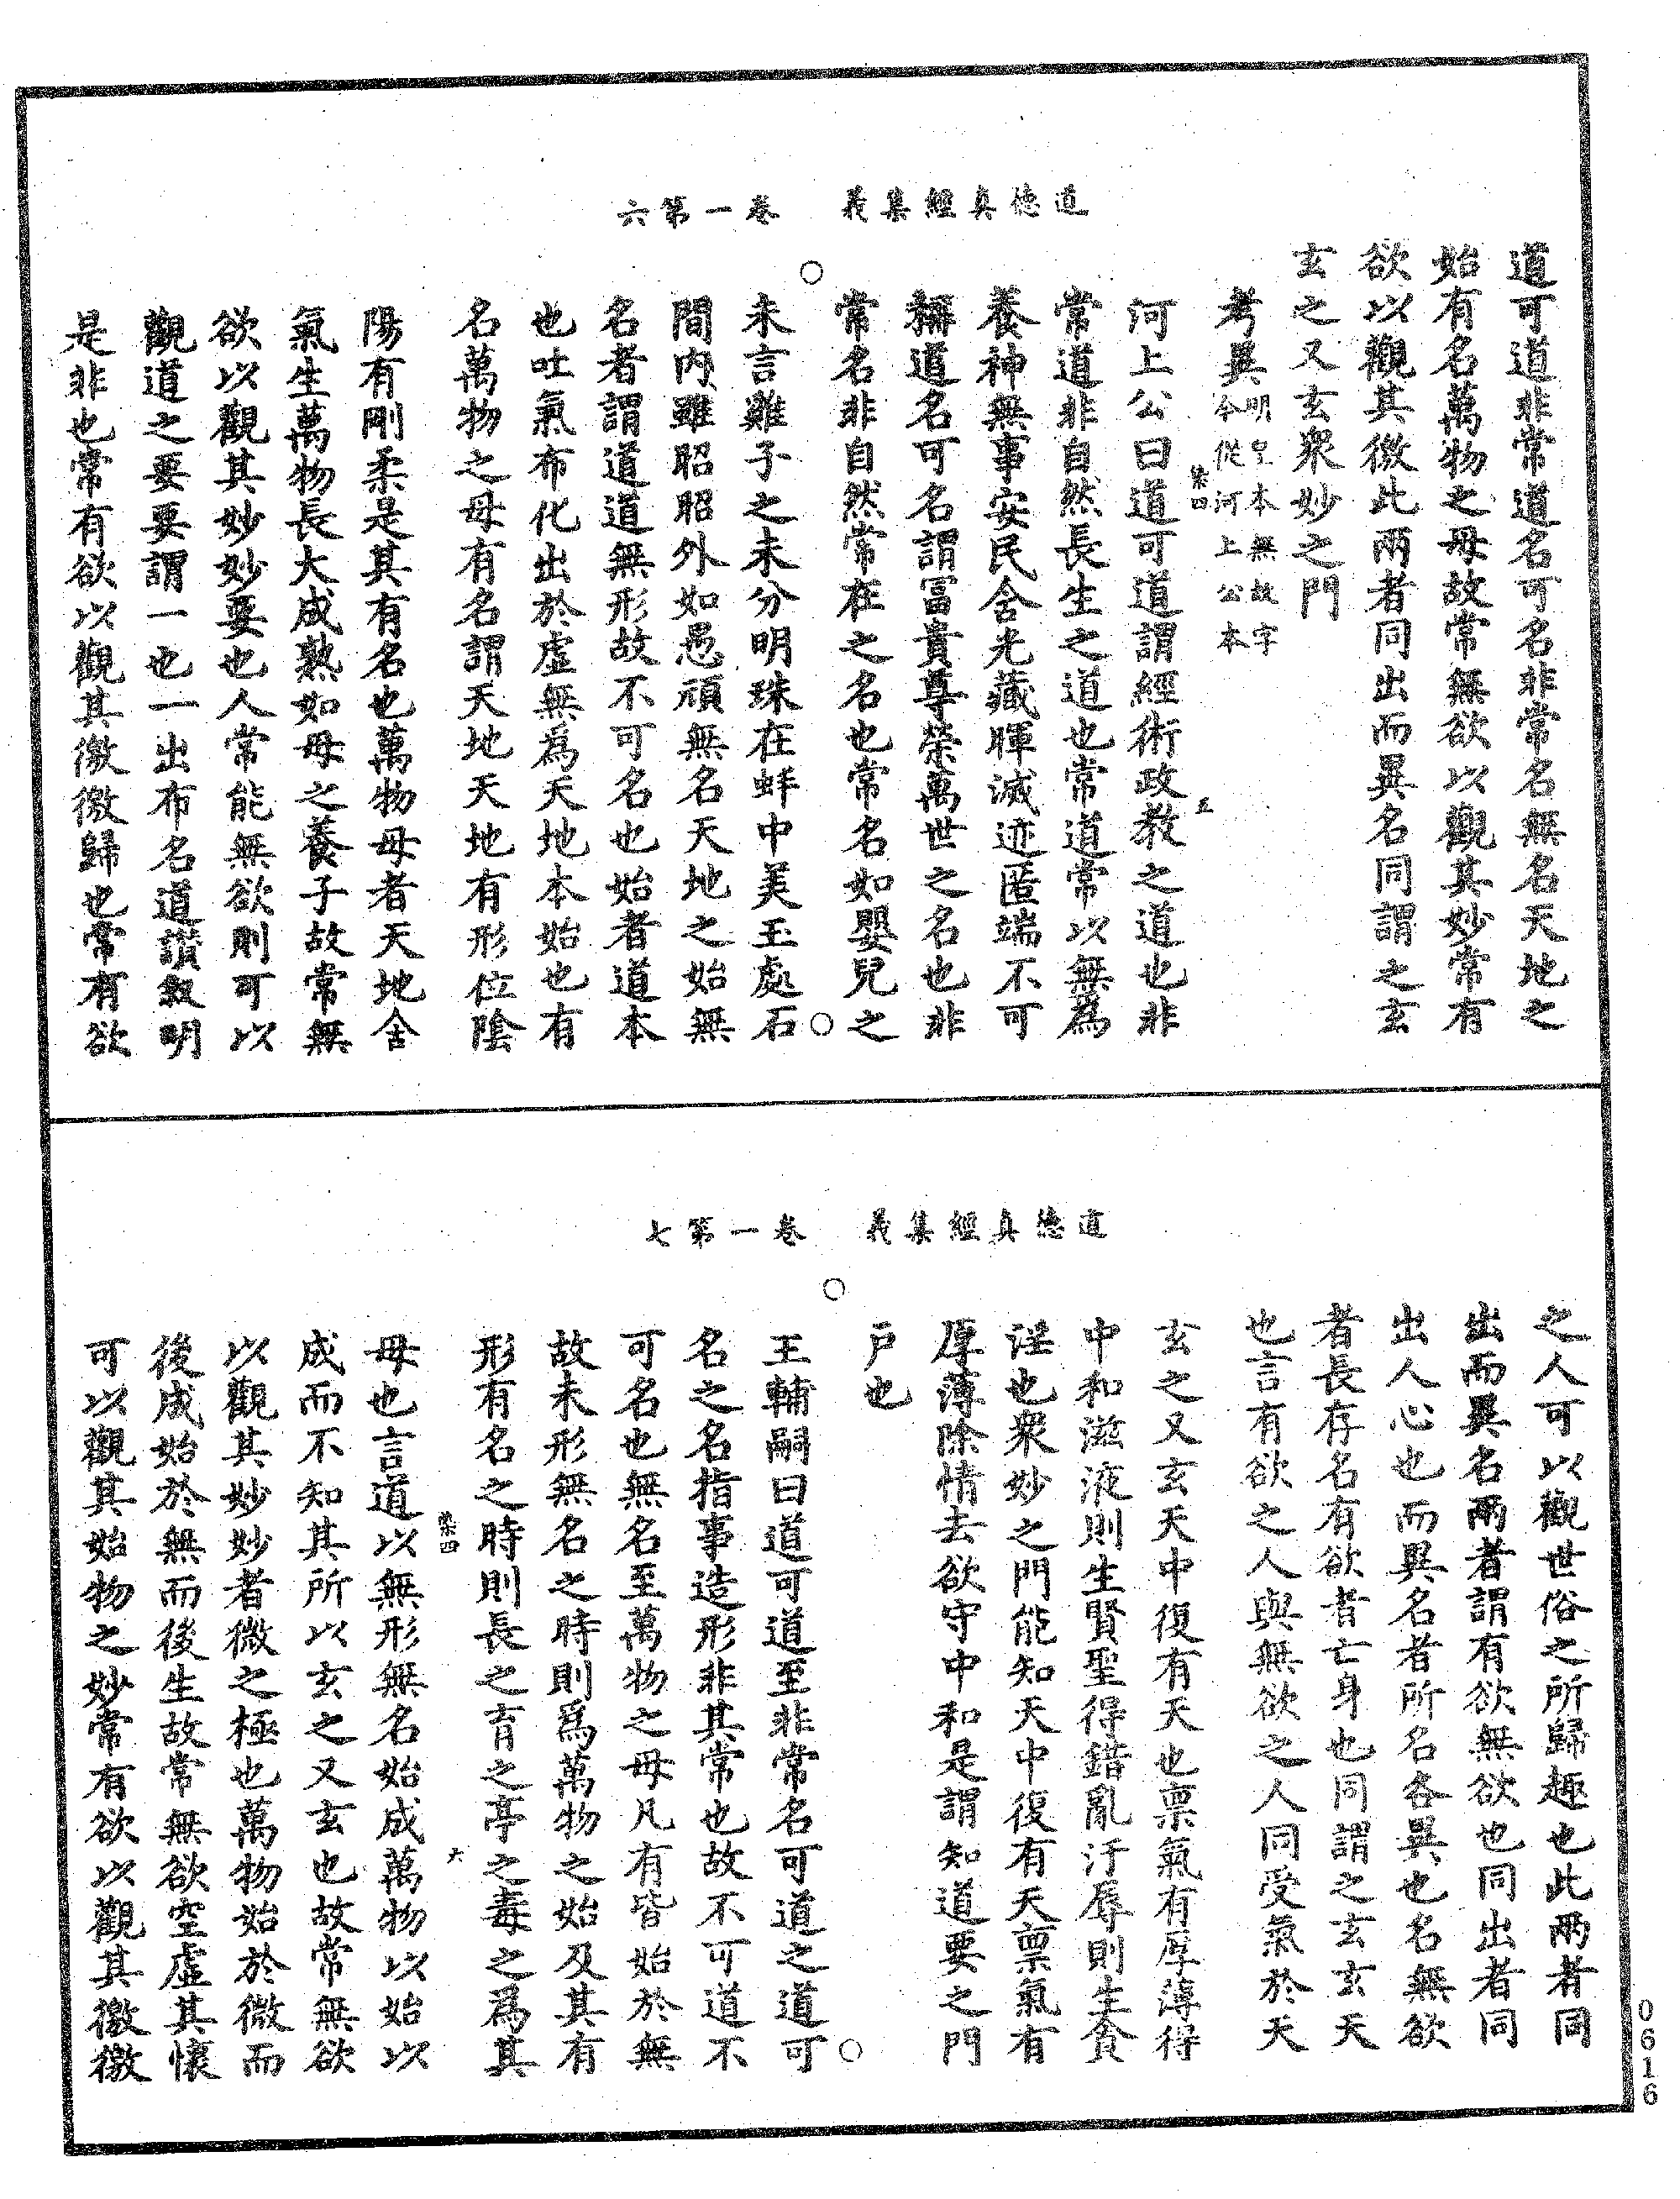 道德真經集義　卷一第六
道可道非常道名可名非常名無名天地之
始有名萬物之母故常無欲以觀其妙常有
欲以觀其徼此兩者同出而異名同謂之玄
玄之又玄衆妙之門
考異明皇本無故字
今從河上公本
河上公曰道可道謂經術政教之道也非
常道非自然長生之道也常道常以無爲
養神無事安民含光藏暉滅迹匿端不可
稱道名可名謂富貴尊榮萬世之名也非
常名非自然常在之名也常名如嬰兒之
未言雞子之未分明珠在蚌中美玉處石
間内雖昭昭外如愚頑無名天地之始無
名者謂道道無形故不可名也始者道本
也吐氣布化出於虛無爲天地本始也有
名萬物之母有名謂天地天地有形位陰
陽有剛柔是其有名也萬物母者天地含
氣生萬物長大成熟如母之養子故常無
欲以觀其妙妙要也人常能無欲則可以
觀道之要要謂一也一出布名道讚叙明
是非也常有欲以觀其徼徼歸也常有欲
道德真經集義　卷一第七
之人可以觀世俗之所歸趣也此兩者同
出而異名兩者謂有欲無欲也同出者同
出人心也而異名者所名各異也名無欲
者長存名有欲者亡身也同謂之玄玄天
也言有欲之人與無欲之人同受氣於天
玄之又玄天中復有天也稟氣有厚薄得
中和滋液則生賢聖得錯亂汙辱則生貪
淫也衆妙之門能知天中復有天稟氣有
厚薄除情去欲守中和是謂知道要之門
戸也
王輔嗣曰道可道至非常名可道之道可
名之名指事造形非其常也故不可道不
可名也無名至萬物之母凡有皆始於無
故未形無名之時則爲萬物之始及其有
形有名之時則長之育之亭之毒之爲其
母也言道以無形無名始成萬物以始以
成而不知其所以玄之又玄也故常無欲
以觀其妙妙者微之極也萬物始於微而
後成始於無而後生故常無欲空虛其懷
可以觀其始物之妙常有欲以觀其徼徼
0616